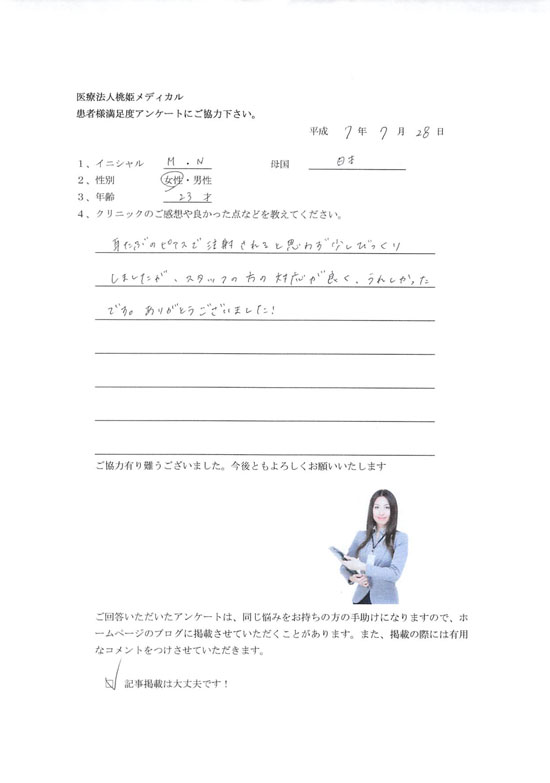 医療法人桃姫メディカル
患者様満足度アンケートにご協力下さい。
平成 7 年 7 月 28 日
1、イニシャル M・N 母国 日本
2、性別 女性・男性
3、年齢 23 才
4、クリニックのご感想や良かった点などを教えてください。
耳たぶのピアスで注射されると思わず少しびっくり
しましたが、スタッフの方の対応が良く、うれしかった
です。ありがとうございました!
ご協力有り難うございました。今後ともよろしくお願いいたします
ご回答いただいたアンケートは、同じ悩みをお持ちの方の手助けになりますので、ホ
ームページのブログに掲載させていただくことがあります。また、掲載の際には有用
なコメントをつけさせていただきます。
記事掲載は大丈夫です!